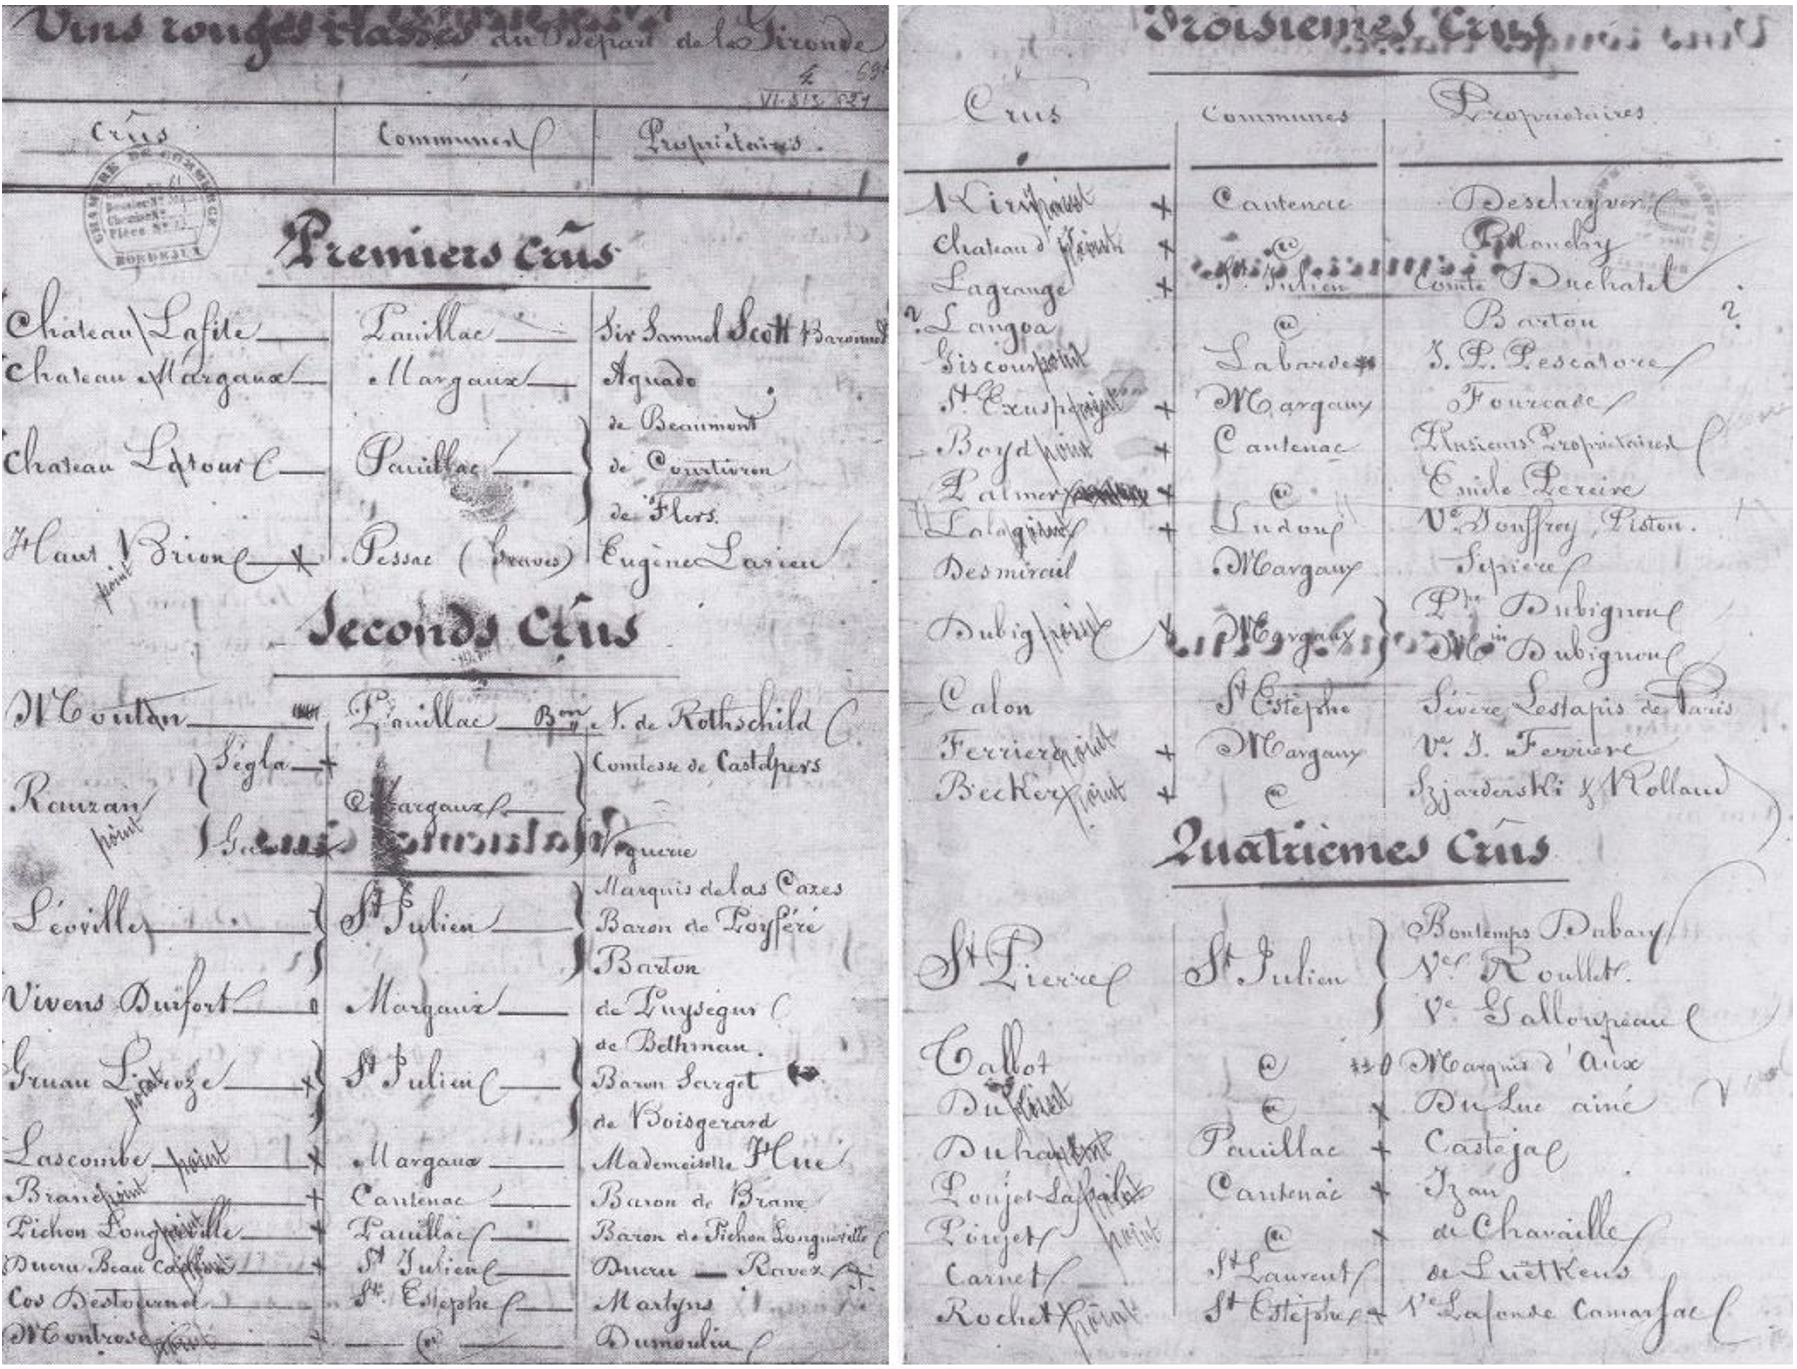 Vins rouges classés du Départ de la Gironde
Crûs Communes Propriétaires.
CHAMBRE DE COMMERCE
BORDEAUX
Premiers Crûs
Château Lafite Pauillac Sir Samuel Scott Baronnet
Chateau Margaux Margaux Aguado
de Beaumont
Chateau Latour Pauillac de Courtivron
de Flers.
Haut Brion Pessac (Graves) Eugène Larieu
point
Seconds Crûs
Mouton Pauillac Bon N. de Rothschild
Ségla Comtesse de Castelpers
Rauzan Margaux
point
Viguerie
Marquis de las Cazes
Léoville St Julien Baron de Poyféré
Barton
Vivens Durfort Margaux de Puységur
de Bethman.
Gruau Laroze St Julien Baron Sarget
point
de Boisgerard
Lascombe point Margaux Mademoiselle Hue
Brane point Cantenac Baron de Brane
Pichon Longueville point Pauillac Baron de Pichon Longueville
Ducru Beau Caillou St Julien Ducru — Ravez
Cos Destournel St Estèphe Martyns
Montrose point @ Dumoulin
Troisièmes Crûs
Crus Communes Propriétaires.
Kir point Cantenac Deschryver
Chateau d' @ Blanchy
Lagrange St Julien Comte Duchatel
? Langoa @ Barton ?
Giscour point Labarde J. P. Pescatore
St Exup point Margaux Fourcade
Boyd point Cantenac Plusieurs Propriétaires
Palmer @ Emile Pereire
Ludon Ve Jouffroy, Piston.
Desmirail Margaux Sipière
Phe Dubignon
Dubig point Margaux
Min Dubignon
Calon St Estèphe Sévère Lestapis de Paris
Ferrière point Margaux Ve J. Ferrière
Becker point @ Szjarderski & Rolland
Quatrièmes Crûs
Bontemps Dubary
St Pierre St Julien Ve Roullet.
Ve Galloupeau
Tallot @ Marquis d'Aux
Du point @ Du Luc ainé
Duhar Pauillac Casteja
Poujet La Cantenac Izan
Poujet point @ de Chavaille
Carnet St Laurent de Luetkens
Rochet point St Estèphe Ve Lafonde Camarsac